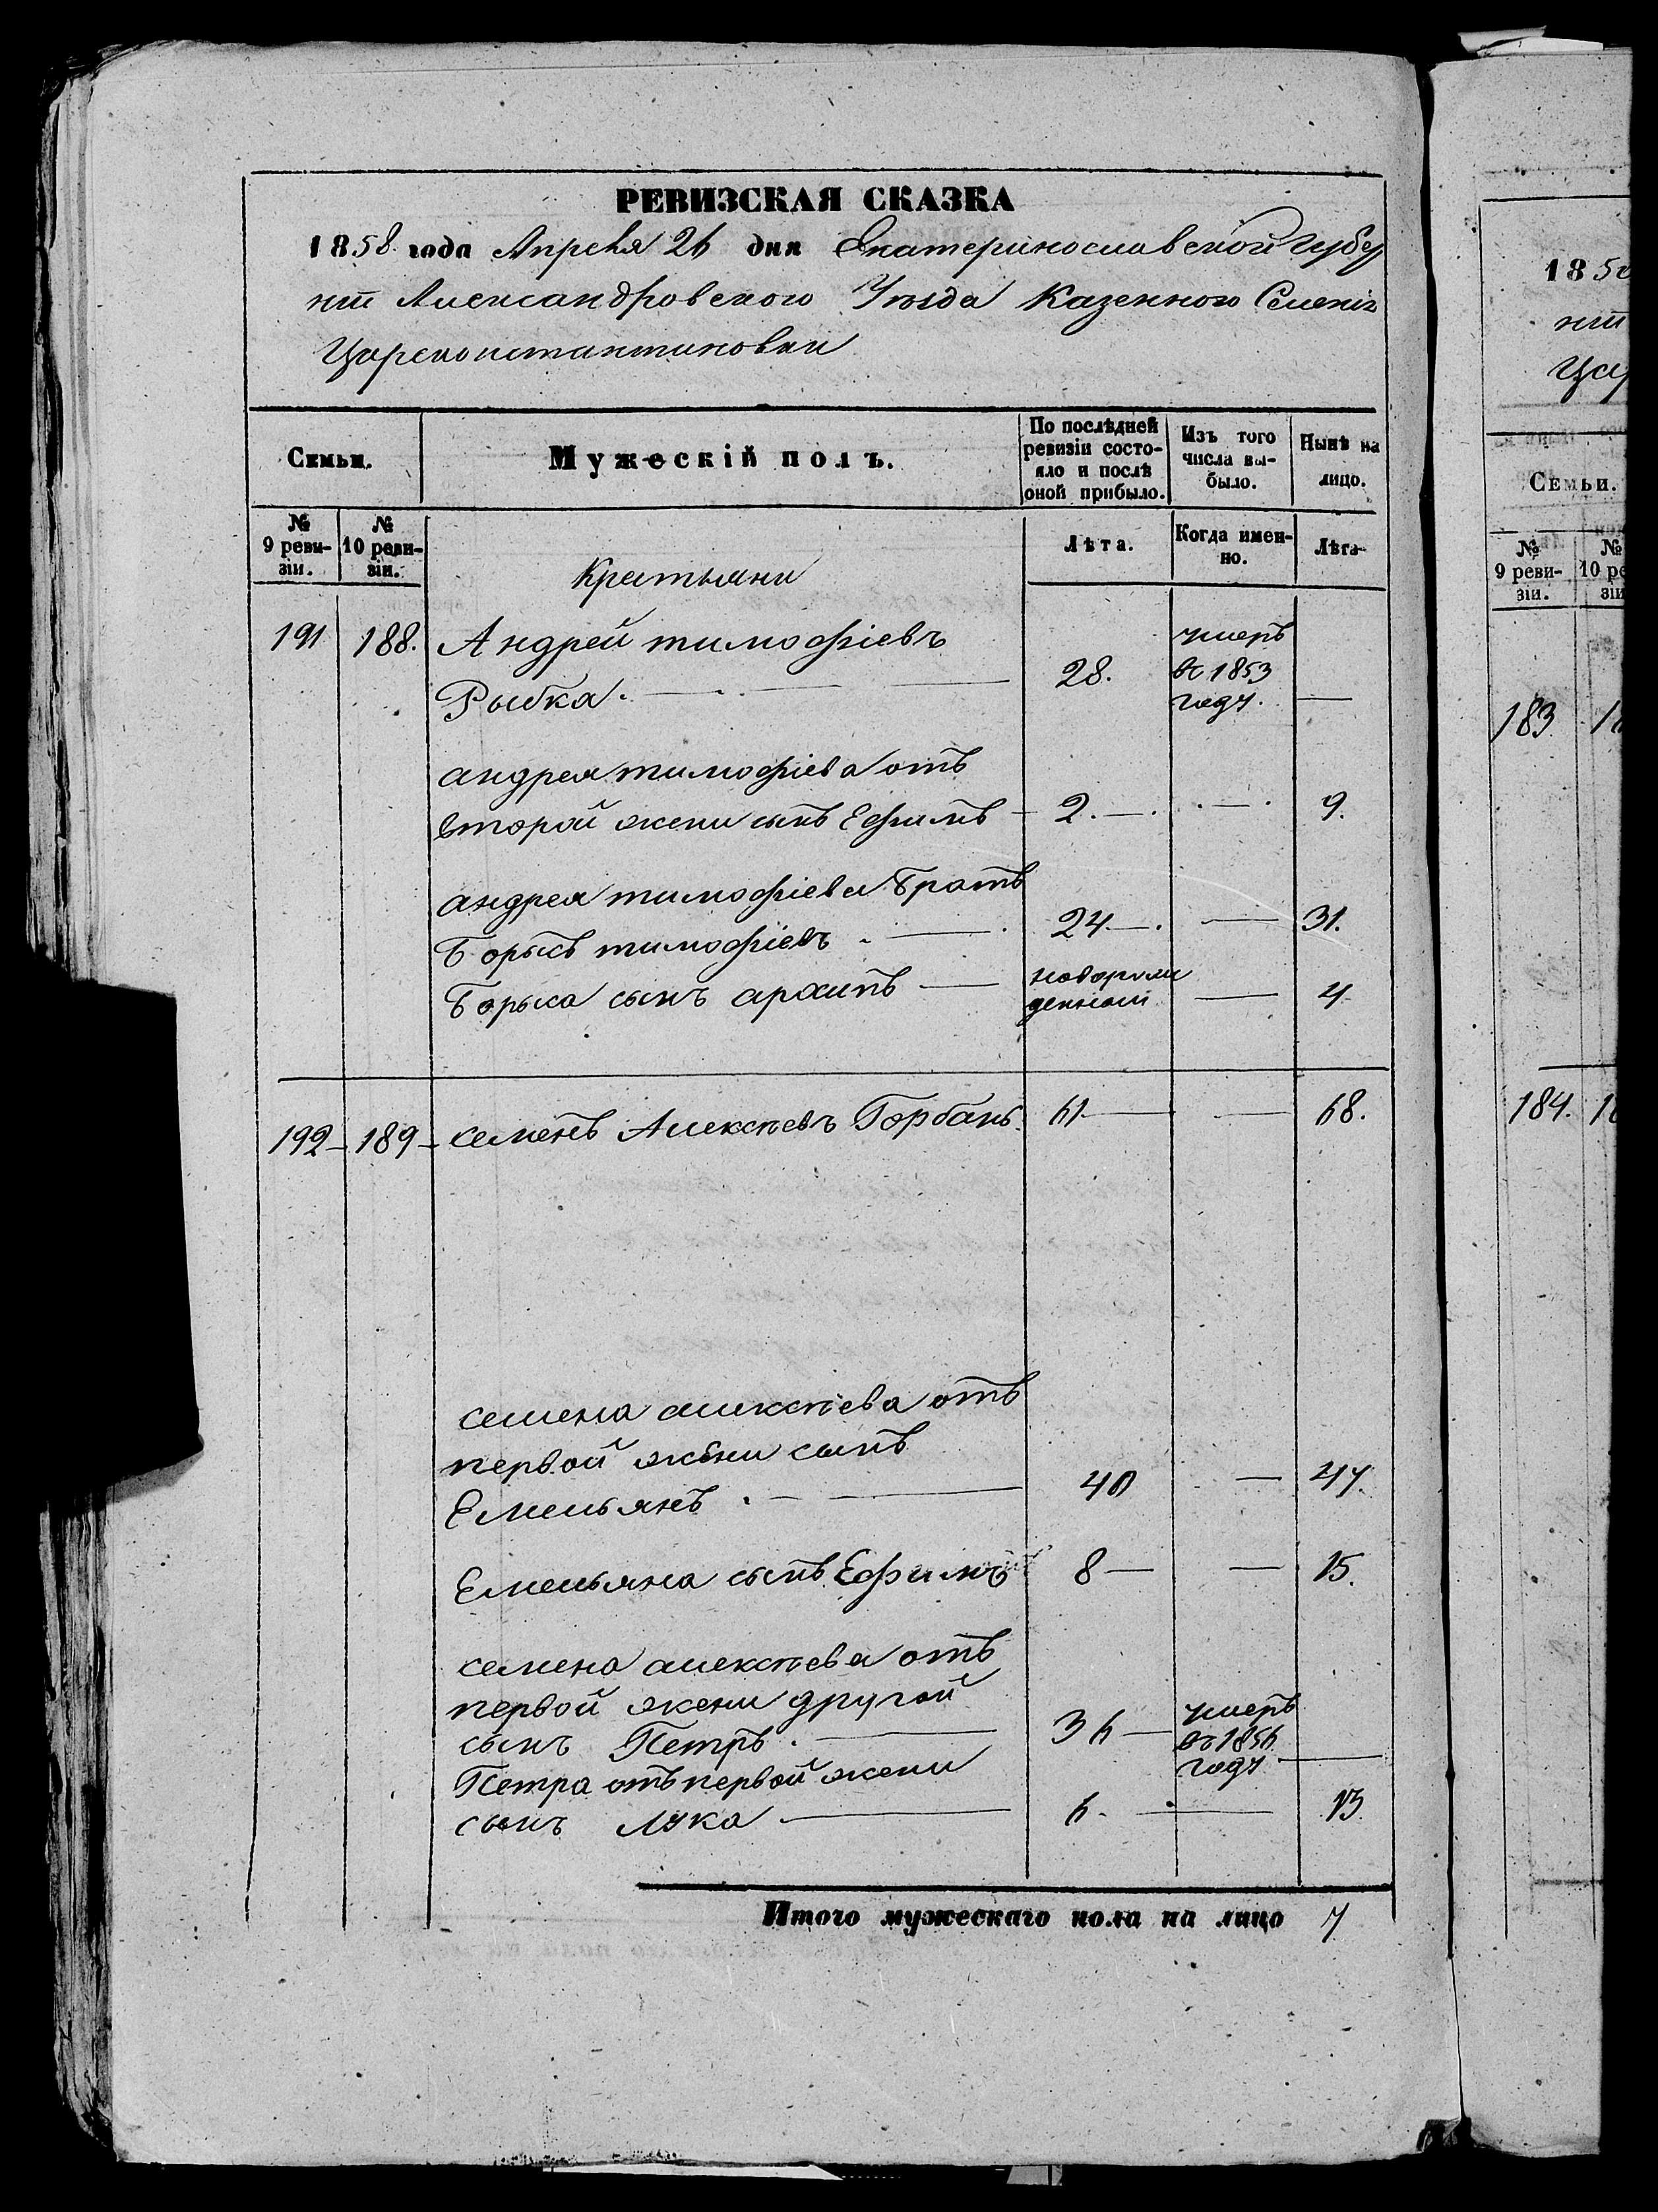 РЕВИЗСКАЯ СКАЗКА
1858 года Апреля 26 дня Екатеринославской губер
нии Александровского Уѣзда Казенного Селенія
Цареконстантиновки
Семьи.
Мужескій полъ.
По послѣдней ревизіи состояло и послѣ оной прибыло.
Изъ того числа выбыло.
Нынѣ на лицо.
№ 9 ревизіи.
№ 10 ревизіи.
Лѣта.
Когда именно.
Лѣта
Крестьяни
191 188. Андрей тимофіевъ
Рыбка. 28. умеръ въ 1853 году. —
андрея тимофіева отъ
второй жени сынъ Ефимъ — 2. — 9.
андрея тимофіева Братъ
Борысъ тимофіевъ 24. — 31.
Борыса сынъ архипъ — новорожденный — 4
192 — 189 — семенъ Алексѣевъ Горбань. 61 — 68.
семена алексѣева отъ
первой жени сынъ
Емельянъ. — 40 — 47.
Емельяна сынъ Ефимъ 8 — 15.
семена алексѣева отъ
первой жени другой
сынъ Петръ. — 36 — умеръ въ 1856 году —
Петра отъ первой жени
сынъ Лука — 6. — 13.
Итого мужескаго пола на лицо 7
1858
нии
Цар
Семьи.
№ 9 ревизіи.
№
10 ре
зіи
183
184.